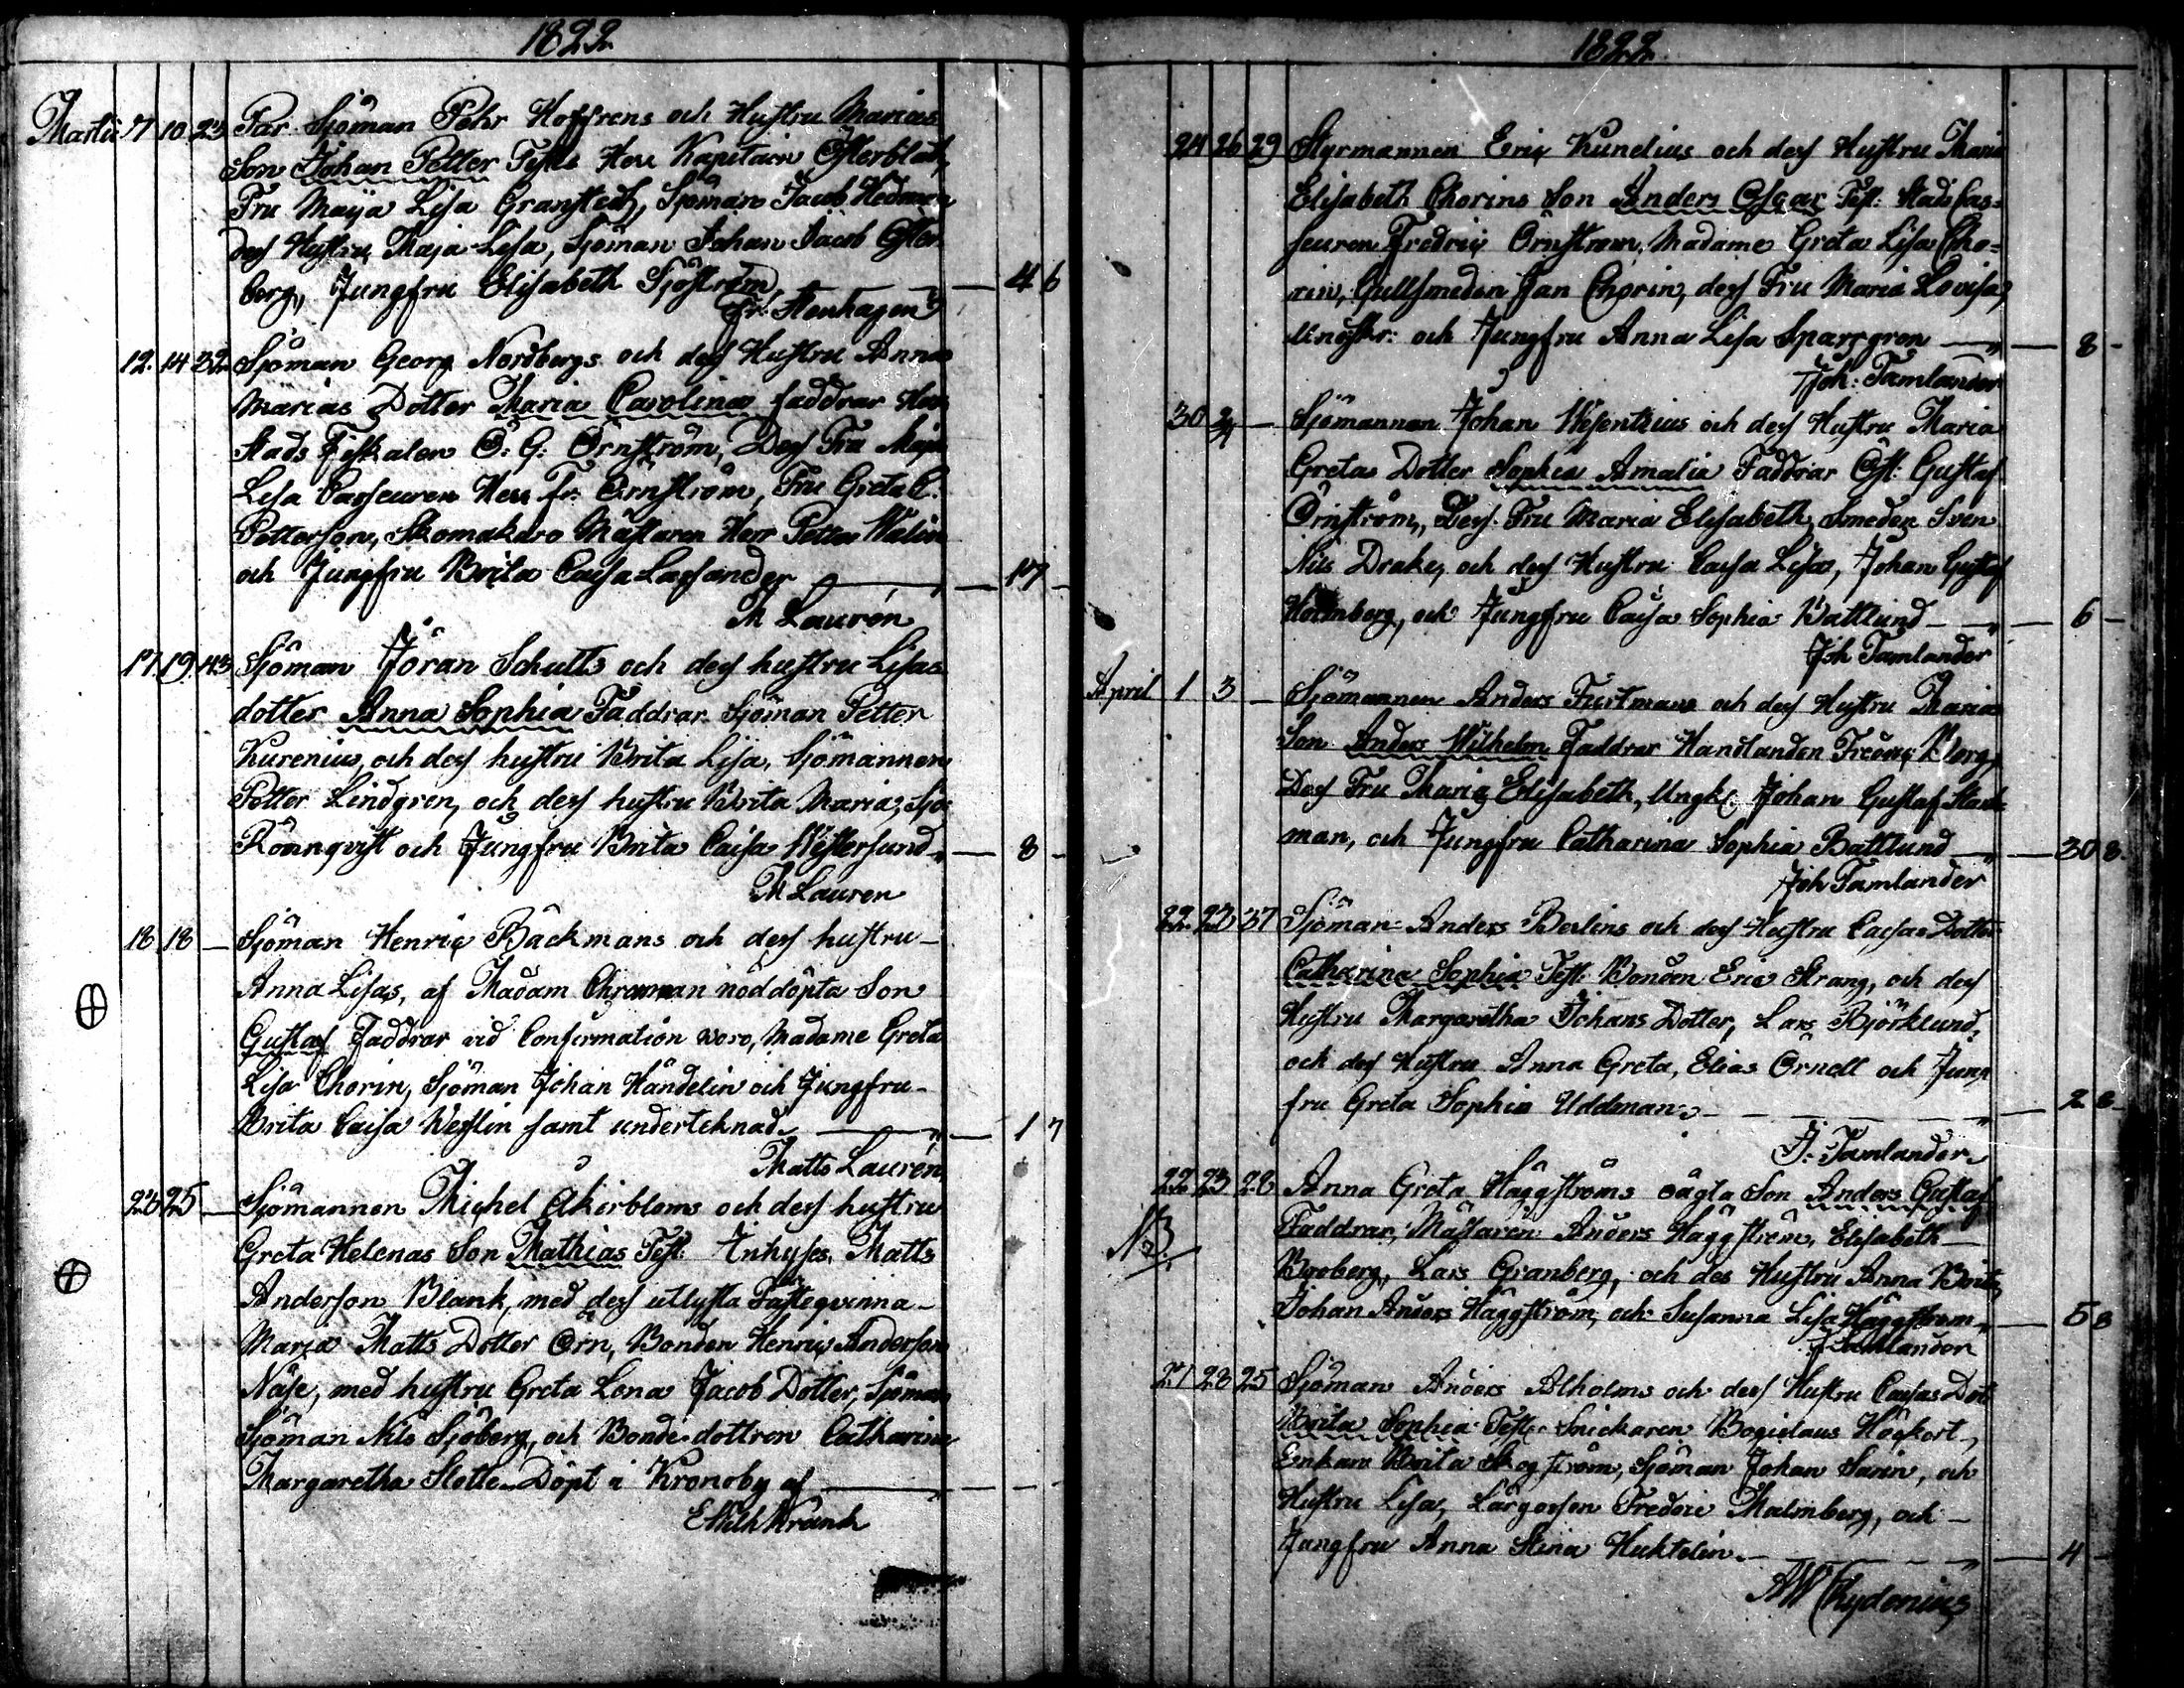 1822
Martii 7 10 23 Par. Sjöman Pehr Hoffrens och Hustru Marias
Son Johan Petter Teste Herr Kapitain Österblad,
Fru Maija Lisa Granstedt, Sjöman Jacob Hedman
dess Hustru Maja Lisa, Sjöman Johan Jacob Öster
berg, Jungfru Elisabeth Sjöström — 4 6
Fr: Stenhagen
12. 14 32 Sjöman Georg Nordbergs och dess Hustru Anna
Marias Dotter Maria Carolina faddrar Herr
Stads Fiskalen C: G: Örnström, Dess Fru Maja
Lisa Casseuren Herr Fr: Örnström, Fru Greta C.
Petterson, Skomakare Mästaren Herr Petter Walin
och Jungfru Brita Caisa Lassander — 17 -
M Laurén
17. 19. 43 Sjöman Jöran Schults och dess hustru Lisas
dotter Anna Sophia Faddrar Sjöman Petter
Kurenius, och dess hustru Brita Lisa, Sjömannen
Petter Lindgren, och dess hustru Brita Maria, Sjö
Rönnqvist och Jungfru Brita Caisa Westersund — 8 -
M Lauren
18 18 — Sjöman Henric Bäckmans och dess hustru
Anna Lisas, af Madam Chroman nöddöpta Son
Gustaf Faddrar vid Confirmation woro, Madame Greta
Lisa Chorin, Sjöman Johan Händelin och Jungfru
Brita Caisa Weslin samt underteknad — 1 7
Matts Laurén
23 25 — Sjömannen Michel Åkerbloms och dess hustru
Greta Helenas Son Mathias Test: Inhyses Matts
Anderson Blank, med dess utlysta Fästeqvinna
Maria Matts Dotter Örn, Bonden Henric Anderson
Näse, med hustru Greta Lena Jacob Dotter, Sjöman
Sjöman Nils Sjöberg, och Bonde dottren Catharina
Margaretha Slotte. Döpt i Kronoby af — - -
1822
24 26 29 Styrmannen Eric Kunelius och dess Hustru Maria
Elisabeth Chorins Son Anders Oscar Test: Stads Cas=
seuren Fredric Örnström, Madame Greta Lisa Cho=
rin, Gullsmeden Jan Chorin, dess Fru Maria Lovisa,
och Jungfru Anna Lisa Sparrgren — 8 -
Joh: Tamlander
30 2/4 — Sjömannen Johan Wesentzius och dess Hustru Maria
Gretas Dotter Sophia Amalia Faddrar Gustaf
Örnström, Dess Fru Maria Elisabeth, Smeden Sven
Nils Drake, och dess Hustru Caisa Lisa, Johan Gustaf
Holmberg, och Jungfru Caisa Sophia Battlund — 6 -
Joh Tamlander
April 1 3 — Sjömannen Anders Furtmans och dess Hustru Marias
Son Anders Wilhelm Faddrar Handlanden Fredric Berg,
Dess Fru Maria Elisabeth, Ungk. Johan Gustaf Stark
man, och Jungfru Catharina Sophia Battlund — 30 8.
Joh Tamlander
22. 23 37 Sjöman Anders Berlins och dess Hustru Caisas Dotter
Catharina Sophia Test: Bonden Eric Strang, och dess
Hustru Margaretha Johans Dotter, Lars Björklund,
och dess Hustru Anna Greta, Elias Örnell och Jung
fru Greta Sophia Uddman — 2 8
J: Tamlander
22 23 28 Anna Greta Häggströms oägta Son Anders Gustaf
N3. Faddrar, Mästaren Anders Häggström, Elisabeth
Broberg, Lars Granberg, och des Hustru Anna Brita,
Johan Anders Häggström, och Susanna Lisa Häggström — 5 8
J Tamlander
27 28 25 Sjöman Anders Alholms och dess Hustru Caisas Dot
Brita Sophia Teste Snickaren Bogislaus Högkort,
Enkan Brita Skogström, Sjöman Johan Sarin, och
Hustru Lisa, Färgarson Fredric Malmberg, och
Jungfru Anna Stina Huktelin — 4 -
AW Chydenius